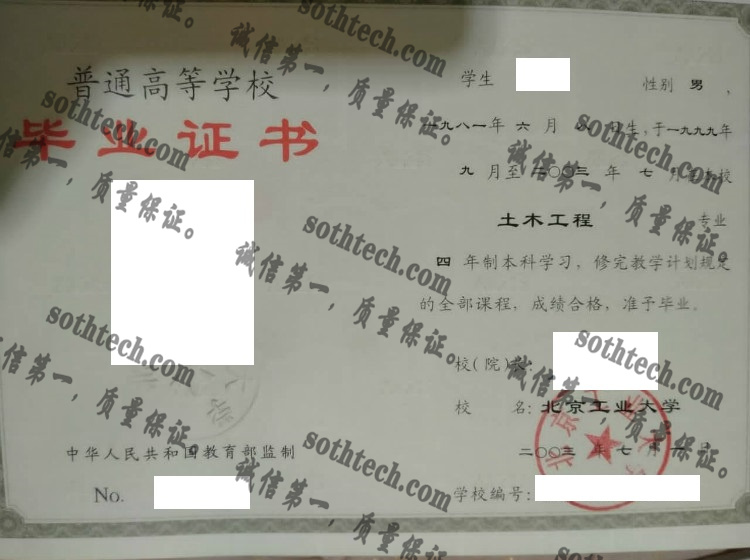 普通高等学校
毕业证书
中华人民共和国教育部监制
No.
学生 性别 男 ,
一九八一年 六 月 日生,于一九九九年
九 月至二〇〇三 年 七 月在本校
土木工程 专业
四 年制本科学习,修完教学计划规定
的全部课程,成绩合格,准予毕业。
校(院)长:
校 名:北京工业大学
二〇〇三 年 七 月 日
学校编号:
sothtech.com
诚信第一,质量保证。
sothtech.com
诚信第一,质量保证。
sothtech.com
诚信第一,质量保证。
sothtech.com
诚信第一,质量保证。
sothtech.com
诚信第一,质量保证。
sothtech.com
诚信第一,质量保证。
sothtech.com
诚信第一,质量保证。
sothtech.com